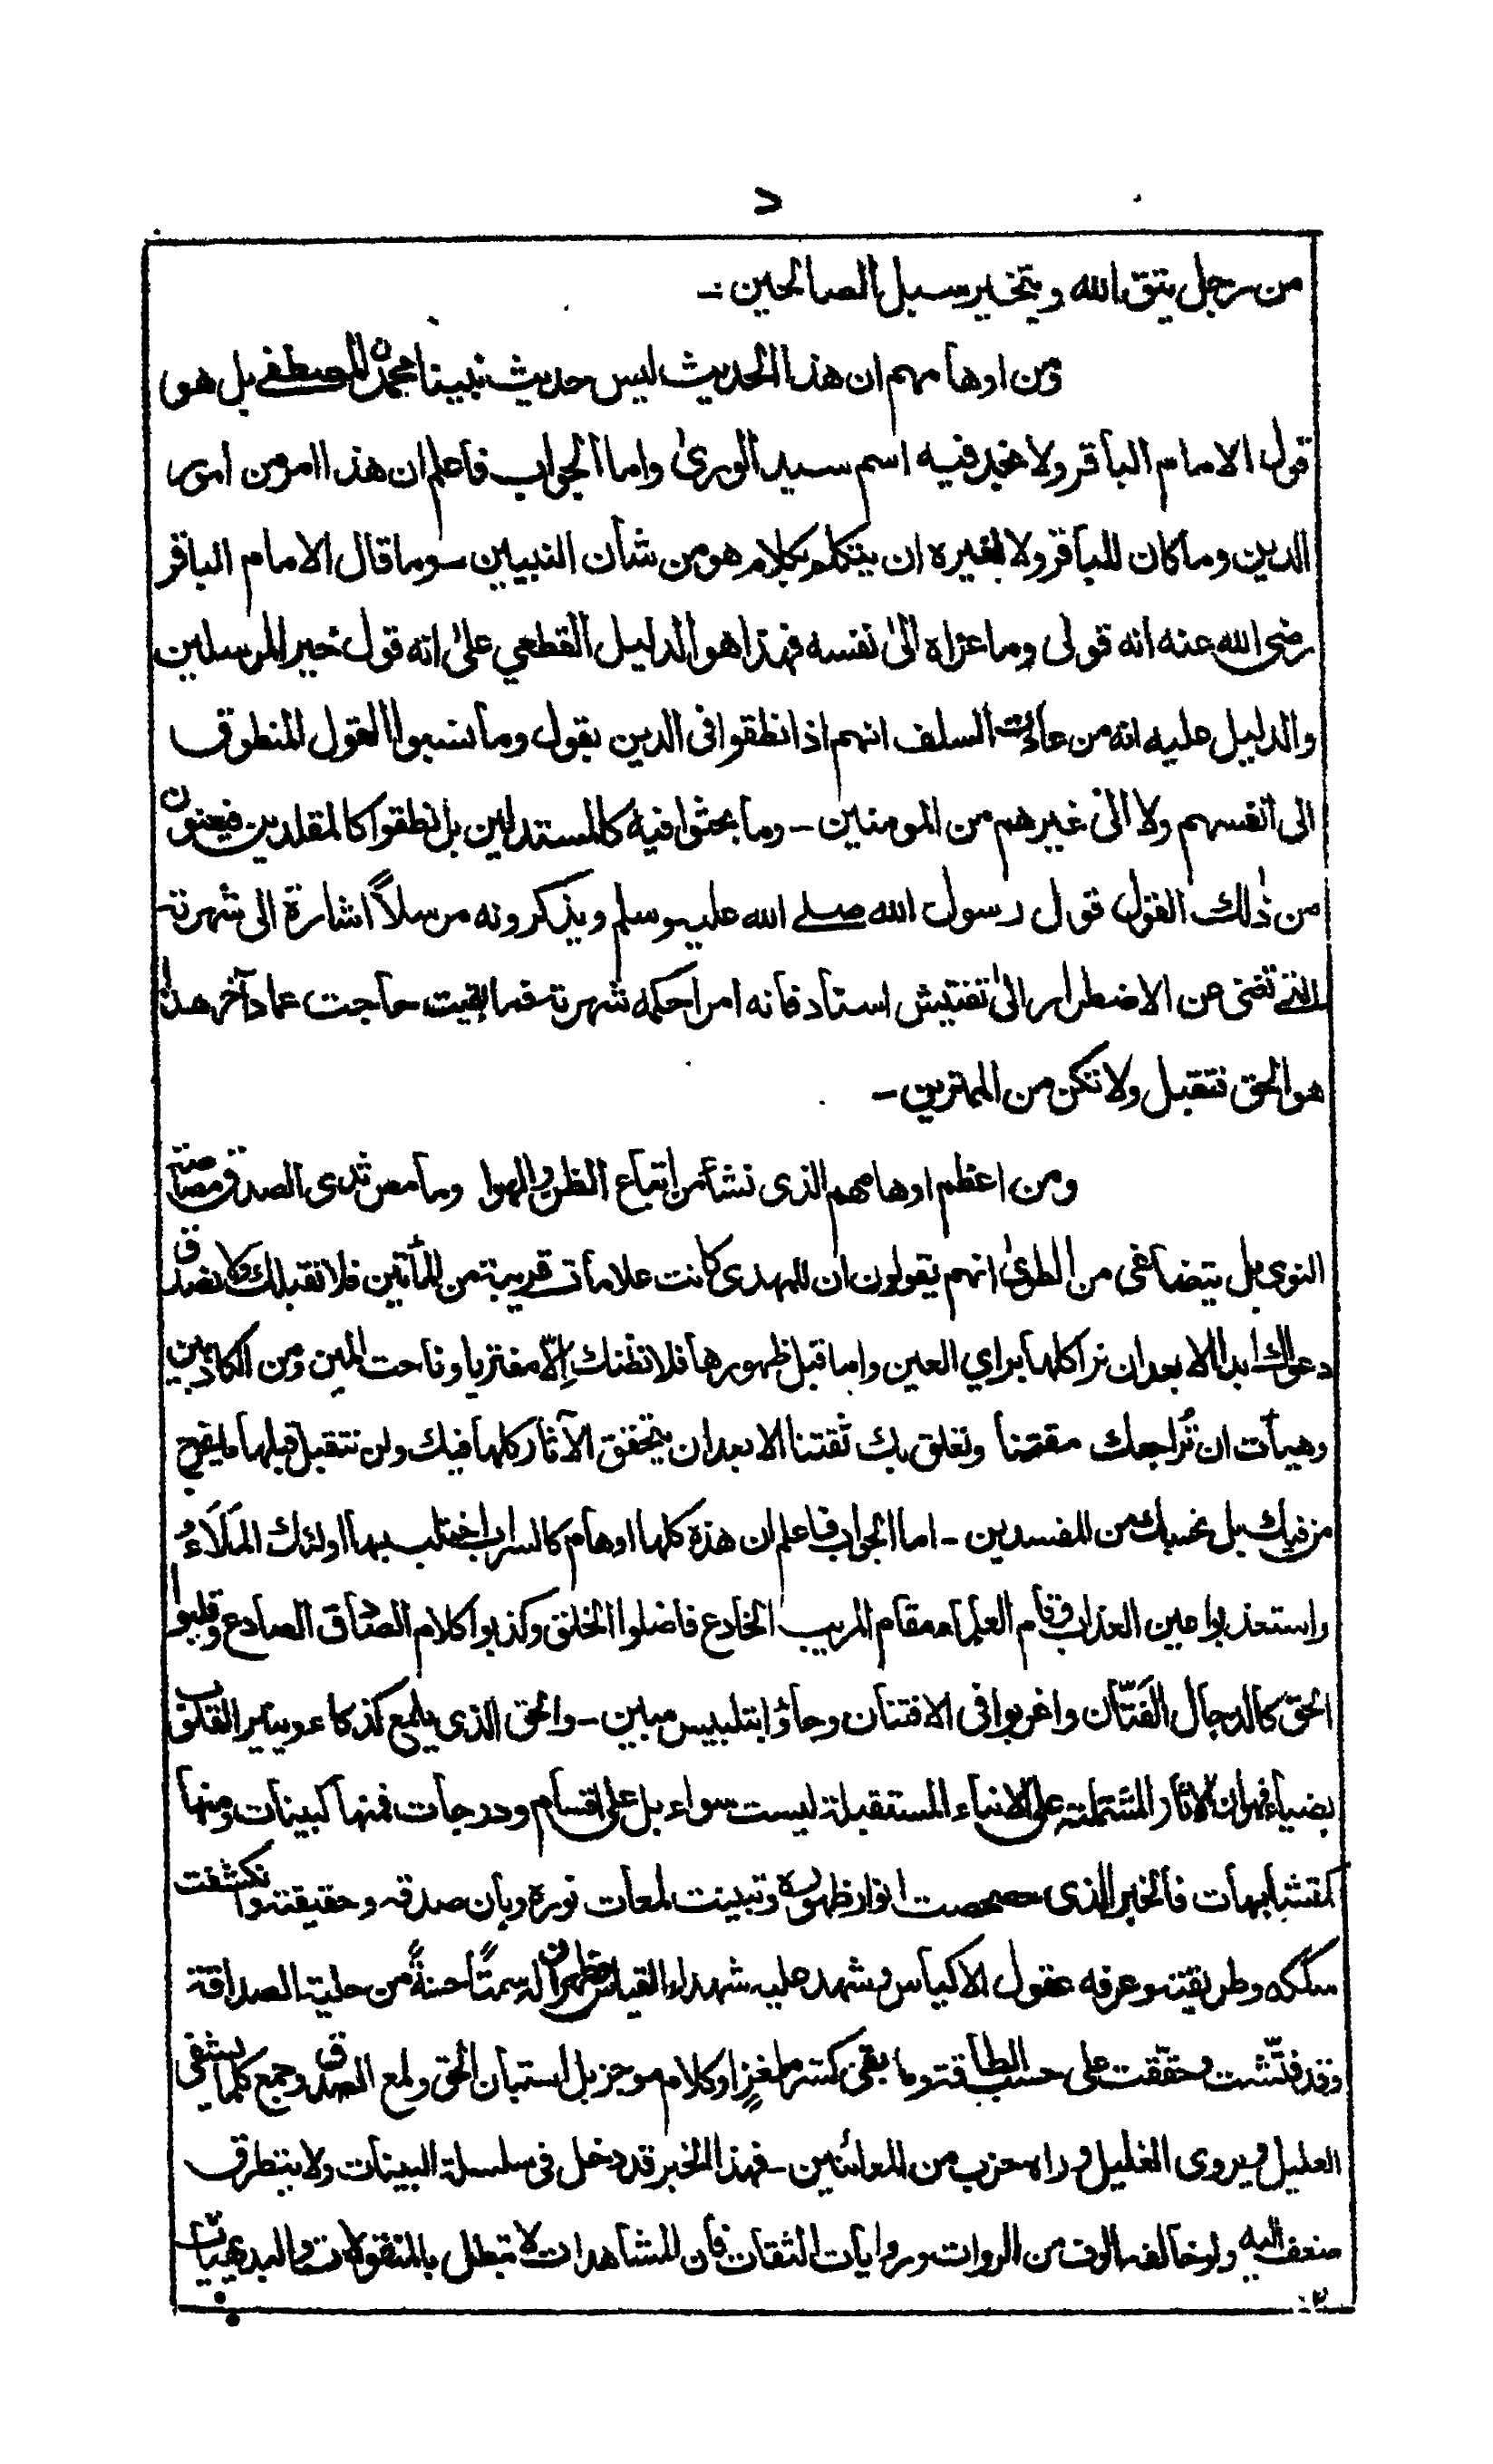 د
من رجل يتق الله ويتخير سبل الصالحين۔
ومن اوهامهم ان هذا الحديث ليس حديث نبينا محمدن المصطفے بل هو
قول الامام الباقر ولا نجد فيه اسم سيد الورىٰ واما الجواب فاعلم ان هذا امر من امور
الدين وما كان للباقر ولا لغيره ان يتكلم بكلام هو من شان النبيين۔ وما قال الامام الباقر
رضی الله عنه انه قولی وما عزاه الیٰ نفسه فهذا هو الدليل القطعي علیٰ انه قول خير المرسلين
والدليل عليه انه من عادات السلف انهم اذا نطقوا فی الدين بقول وما نسبوا القول المنطوق
الی انفسهم ولا الیٰ غيرهم من المومنين۔ وما بحثوا فيه كالمستدلين بل نطقوا كالمقلدين فيعنون
من ذٰلك القول قول رسول الله صلے الله عليه وسلم ويذكرونه مرسلاً اشارة الی شهرته
التے تغنی عن الاضطرار الیٰ تفتيش اسناد فانه امر احكمه شهرته فما بقيت حاجت عماد آخر هذا
هو الحق فتقبل ولا تكن من الممترين۔
ومن اعظم اوهامهم الذی نشأ من اتباع الظن والهوا وما مص ثدی الصدق مصاصة
النوی بل يتضاغی من الطویٰ انهم يقولون ان للمهدی كانت علامات قريبة من المأتين فلا نقبلك ولا نصدق
دعواك ابدا الا بعد ان نرا كلها براي العين واما قبل ظهورها فلا نظنك اِلّا مفتريا وناحت المين ومن الكاذبين
وهيأت ان تُراجعك مقتنا وتعلق بك ثقتنا الا بعد ان يتحقق الآثار كلها فيك ولن نتقبل قبلها ما يخرج
من فيك بل نحسبك من المفسدين۔ اما الجواب فاعلم ان هذه كلها اوهام كالسراب اختلب بها اولئك الملَاءُ
واستعذبوا عين العذاب وقام العلماء مقام المريب الخادع فاضلوا الخلق وكذبوا كلام الصادق الصادع وقلبوا
الحق كالدجال الفَتّان واغربوا فی الافتنان وجاؤا بتلبيس مبين۔ والحق الذی يلمع كذكاء وينير القلوب
بضياء فهو ان الاثار المشتملة علی الانباء المستقبلة ليست سواء بل علی اقسام ودرجات فمنها كبينات ومنها
كمتشابهات فالخبر الذی حصحصت انوار ظهوره وتبينت لمعات نوره وبان صدقه وحقيقته وانكشفت
سككه وطريقته وعرفه عقول الاكياس وشهد عليه شهداء القياس وظهر ان له سمتًا حسنةً من حلية الصداقة
وقد فتّشت وحقّقت علی حسب الطاقة وما بقی كستر ملغزٍ او كلام موجز بل استبان الحق ولمع الصدق وجمع كلما يشفی
العليل ويروی الغليل وراه حزب من المعائنين۔ فهذا الخبر قد دخل فی سلسلة البينات ولا يتطرق
ضعف اليه ولو خالفه الوف من الروات وروايات الثقات فان المشاهدات لا تبطل بالمنقولات والبديهيات